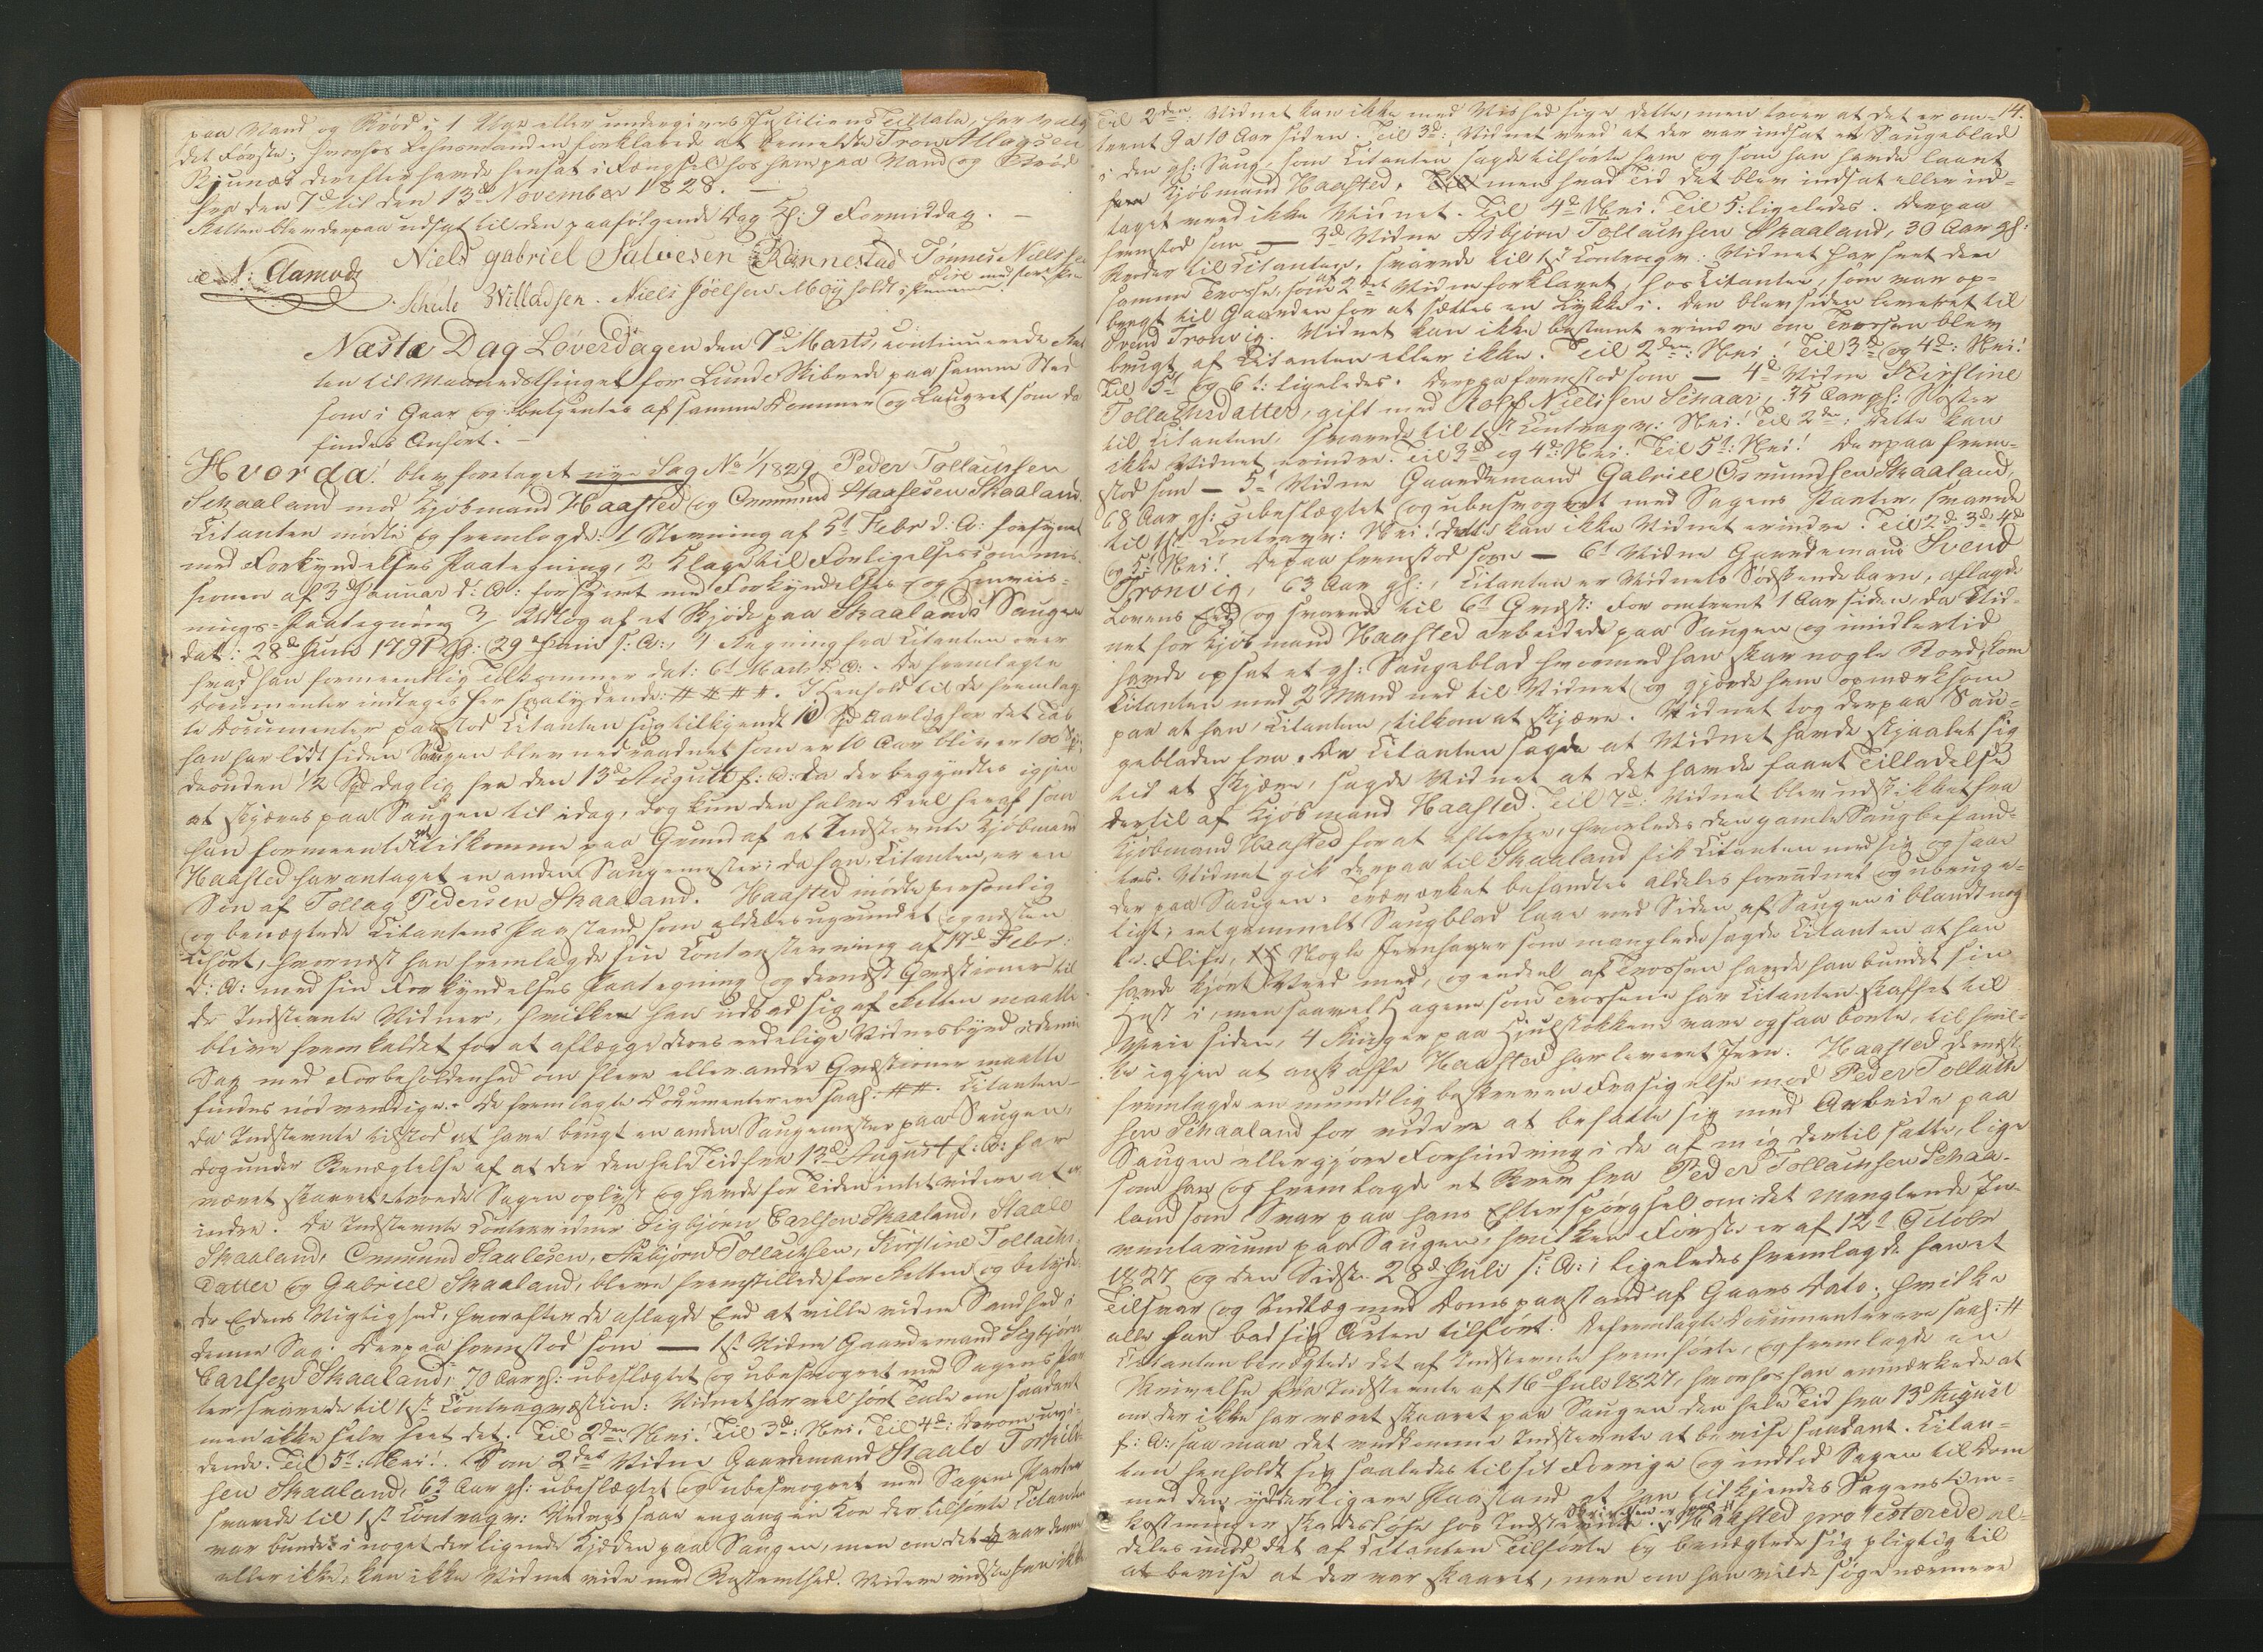 paa Vand og Brød i 1 Uge eller undergives Justitiens Tiltale, har valg
det Første; hvorhos Lehnsmanden forklarede at bemeldte Tron Atlagsen
Bjunæs derefter havde hensat i Fængsel hos ham paa Vand og Brød
fra den 7d til den 13de November 1828. —
Retten blev derpaa udsat til den paafølgende Dag Kl: 9 Formiddag. —
N: Aamodt Niels Gabriel Salvesen Rønnestad Tønnes Nielsen
Eie med ført Pen
Schule Willadsen. Niels Jöelsen Moÿ holdt i Pennen.
Næste Dag Løverdagen den 7d Marts, continuerede Ret
ten til Maanedsthinget for Lunde Skibrede paa samme Sted
som i Gaar og betjentes af samme Dommer og Laugret som da
findes Anført. —
Hvorda! blev foretaget nye Sag No 1/1829, Peder Tollachsen
Schaaland mod Kjøbmand Haasted og Ommund Staalesen Skaaland.
Citanten mødte og fremlagde: 1 Stevning af 5t Febr d: A: forsynet
med Forkyndelses Paategning, 2 Klage til Forligelsescommis-
sionen af 3d Januar d: A: forsynet med Forkyndelses og Henviis-
nings-Paategning 3, Udtog af et Skjøde paa Skaalands Saugen
dat: 28de Juni 1791 og 29de Juni s: A:, 4 Regning fra Citanten over
hvad han formeentlig Tilkommer dat: 6t Marts d: A: De fremlagte
Documenter indtages her saalydende: ####. I Henhold til de fremlag-
te Documenter paastod Citanten sig tilkjendt 10 Spd Aarlig for det Tab
han har lidt siden Saugen blev nedraadnet som er 10 Aar bliver 100 Spd
desuden 1/2 Spd daglig fra den 13de August f: A: da der begyndtes igjen
at skjæres paa Saugen til idag, dog kun den halve Deel heraf som
han formeente at tilkomme paa Grund af at Indstevnte Kjøbmand
Haasted har antaget en anden Saugemester, da han, Citanten, er en
Søn af Tollag Pedersen Skaaland. Haasted mødte personlig
og benægtede Citantens Paastand som aldeles ugrundet og næsten
uhørt, hvornæst han fremlagde sin Contrastevning af 17de Febr:
d: A: med sin Forkyndelses Paategning og dernæst Qvæstioner til
de Indstevnte Vidner, hvilken han udbad sig af Retten maatte
blive fremkaldet for at aflægge deres edelige Vidnesbyrd i denne
Sag med Forbeholdenhed om flere eller andre Qvæstioner maatte
findes nødvendige. De fremlagte Documenter ere saal: ##. Citanten
da Indstevnte tilstod at have brugt en anden Saugemester paa Saugen,
dog under Benægtelse af at der den hele Tid fra 13de August f: A: har
været skaaret, troede Sagen oplyst og havde for Tiden intet videre at er
indre. De Indstevnte Contravidner Sigbjørn Carlsen Skaaland, Staale
Skaaland, Ommund Staalesen, Asbjørn Tollachsen, Kirstine Tollachs
Datter og Gabriel Skaaland, bleve fremstillede for Retten og betyde
de Edens Vigtighed, hvorefter de aflagde Eed at ville vidne Sandhed i
denne Sag. Derpaa fremstod som — 1st Vidne Gaardemand Sigbjørn
Carlsen Skaaland, 70 Aar gl: ubeslægtet og ubesvogret med Sagens Par
ter, svarede til 1ste Contraqvæstion: Vidnet har vel hørt Tale om saadant
men ikke selv seet det. Til 2den: Nei! Til 3de: Nei! Til 4de: derom uvi-
dende. Til 5t: Nei! Som 2det Vidne Gaardemand Staale Torkild-
sen Skaaland, 63 Aar gl: ubeslægtet og ubesvogret med Sagens Parter
svarede til 1st Contraqv: Vidnet saae engang en Koe der tilhørte Citanten
var bundet i noget der lignede Kjæden paa Saugen, men om det var denne
eller ikke, kan ikke Vidnet vide med Bestemthed. Videre vidste han ikke
14.
Til 2den: Vidnet kan ikke med Vished sige dette, men troer at det er om-
trent 9 a 10 Aar siden. Til 3d: Vidnet veed at der var indsat et Saugeblad
i den gl: Saug, som Citanten sagde tilhørte ham og som han havde laant
Kjøbmand Haasted, men hvad Tid det blev indsat eller ud-
taget veed ikke Vidnet. Til 4de Nei! Til 5: ligeledes. Derpaa
fremstod som — 3d Vidne Asbjørn Tollachsen Skaaland, 30 Aar gl:
Broder til Citanten, svarede til 1st Contraqv: Vidnet har seet den
samme Trosse, som af 2det Vidne forklaret, hos Citanten, som var op-
bragt til Gaarden for at sættes en Lykke i. Den blev siden leveret til
Svend Tronvig. Vidnet kan ikke bestemt erindre om Trossen blev
brugt af Citanten eller ikke. Til 2den: Nei! Til 3d og 4d: Nei!
Til 5t og 6t: ligeledes. Derpaa fremstod som — 4d Vidne Kirstine
Tollachsdatter, gift med Rolf Nielsen Schaar, 35 Aar gl: Søster
til Citanten, svarede til 1st Contraqv: Nei! Til 2de: dette kan
ikke Vidnet erindre. Til 3d og 4d: Nei! Til 5t: Nei! Derpaa frem-
stod som — 5t Vidne Gaardemand Gabriel Osmundsen Skaaland,
68 Aar gl: ubeslægtet og ubesvogret med Sagens Parter, svarede
til 1ste Contraqv: Nei! dette kan ikke Vidnet erindre. Til 2de 3de 4de
og 5t: Nei! Derpaa fremstod som — 6t Vidne Gaardemand Svend
Tronvig, 63 Aar gl:, Citanten er Vidnets Sødskendebarn, aflagde
Lovens Eed og svarede til 6t Qvæst: For omtrent 1 Aar siden, da Vid-
net for Kjøbmand Haasted arbeidede paa Saugen og imidlertid
havde opsat et gl: Saugeblad hvormed han skar nogle Bord, kom
Citanten med 2 Mand ned til Vidnet og gjorde ham opmærksom
paa at han, Citanten, tilkom at skjære. Vidnet tog derpaa Sau-
gebladen fra. Da Citanten sagde at Vidnet havde stjaalet sig
til at skjære, sagde Vidnet at det havde faaet Tilladelse
dertil af Kjøbmand Haasted. Til 7d: Vidnet blev udskikket fra
Kjøbmand Haasted for at eftersee, hvorledes den gamle Saug befand-
tes. Vidnet gik derpaa til Skaaland fik Citanten med sig og saae
der paa Saugen. Træværket befandtes aldeles forraadnet og ubruge-
ligt; et gammelt Saugblad laae ved Siden af Saugen i blandt nog-
le Flise, Nogle Jernhager som manglede sagde Citanten at han
havde kjørt Veed med, og endeel af Trossen havde han bundet sin
Hest i, men saavel Hagene som Trossene har Citanten skaffet til
Veie siden, 4 Ringer paa Hjulstokken vare ogsaa borte, til hvil-
ke igjen at anskaffe Haasted har leveret Jern. Haasted dernæst
fremlagde en mundtlig beskreven Frasigelse mod Peder Tollach-
sen Schaaland for videre at befatte sig med Arbeide paa
Saugen eller gjøre Forhindring i de af mig dertil satte, lige
som han og fremlagde et Brev fra Peder Tollachsen Schaa-
land som Svar paa hans Efterspørgsel om det manglende In-
ventarium paa Saugen, hvilken Første er af 12t October
1827 og den Sidste 28d Juli s: A: ligeledes fremlagde han et
Tilsvar og Indlæg med Doms paastand af Gaars Dato; hvilke
alle han bad sig Acten tilført. De fremlagte Documenter ere saal: #
Citanten benægtede det af Indstevnte fremførte, og fremlagde en
Skrivelse fra Indstevnte af 16d Juli 1827, hvorhos han anmærkede at
om der ikke har været skaaret paa Saugen den hele Tid fra 13d August
f: A:, saa maa det vedkomme Indstevnte at bevise saadant. Citan-
ten henholdt sig saaledes til sit Forrige og indlod Sagen til Dom
med den yderligere Paastand at han tilkjendes Sagens Om-
kostninger skadesløse hos Indstevnte. Skrivelsen er saal: # Haasted protesterede al-
deles mod det af Citanten Tilførte og benægtede sig pligtig til
at bevise at der var skaaret, men om han vilde søge nærmere